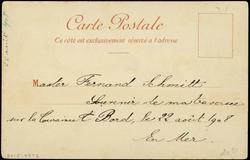 Carte Postale
Ce côté est exclusivement réservé à l'adresse
Master Fernand Schmitt
Souvenir de ma traversée
sur la à Bord, le 22 août 1908
En Mer